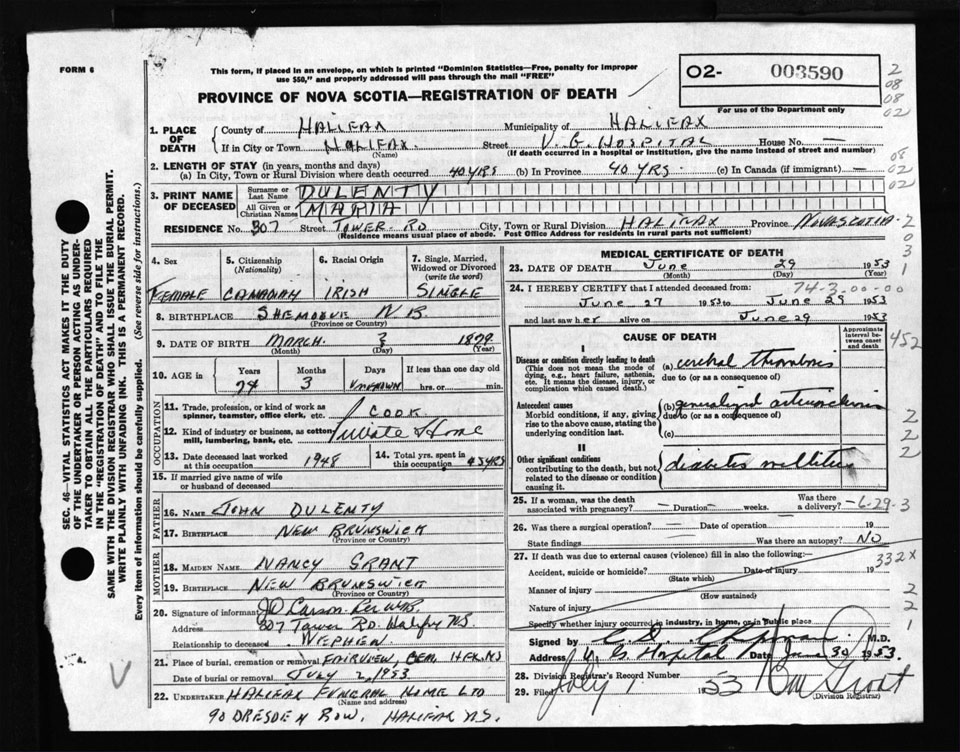 FORM 6
This form, if placed in an envelope, on which is printed "Dominion Statistics—Free, penalty for improper
use $50," and properly addressed will pass through the mail "FREE"
PROVINCE OF NOVA SCOTIA—REGISTRATION OF DEATH
02- 003590
For use of the Department only
2
08
08
02
1. PLACE OF DEATH
County of HALIFAX Municipality of HALIFAX
If in City or Town HALIFAX Street V. G. HOSPITAL House No. —
(Name) (If death occurred in a hospital or institution, give the name instead of street and number)
08
02
02
2. LENGTH OF STAY (in years, months and days)
(a) In City, Town or Rural Division where death occurred 40 YRS (b) In Province 40 YRS. (c) In Canada (if immigrant) —
3. PRINT NAME OF DECEASED
Surname or Last Name DULENTY
All Given or Christian Names MARIA
RESIDENCE No. 307 Street TOWER RD City, Town or Rural Division HALIFAX Province NOVA SCOTIA
(Residence means usual place of abode. Post Office Address for residents in rural parts not sufficient)
2
0
3
1
4. Sex FEMALE
5. Citizenship (Nationality) CANADIAN
6. Racial Origin IRISH
7. Single, Married, Widowed or Divorced (write the word) SINGLE
8. BIRTHPLACE SHEMOGUE N.B.
(Province or Country)
9. DATE OF BIRTH MARCH 3 1879
(Month) (Day) (Year)
10. AGE in Years 74 Months 3 Days UNKNOWN If less than one day old hrs. or min.
OCCUPATION
11. Trade, profession, or kind of work as spinner, teamster, office clerk, etc. COOK
12. Kind of industry or business, as cotton-mill, lumbering, bank, etc. Private Home
13. Date deceased last worked at this occupation 1948
14. Total yrs. spent in this occupation 45 YRS
15. If married give name of wife or husband of deceased
FATHER
16. NAME JOHN DULENTY
17. BIRTHPLACE NEW BRUNSWICK
(Province or Country)
MOTHER
18. MAIDEN NAME NANCY GRANT
19. BIRTHPLACE NEW BRUNSWICK
(Province or Country)
20. Signature of informant
Address 307 Tower Rd. Halifax N.S.
Relationship to deceased NEPHEW
21. Place of burial, cremation or removal FAIRVIEW, CEM, HFX. NS
Date of burial or removal JULY 2, 1953
22. UNDERTAKER HALIFAX FUNERAL HOME LTD
(Name and address)
90 DRESDEN ROW. HALIFAX N.S.
MEDICAL CERTIFICATE OF DEATH
23. DATE OF DEATH June 29 1953
(Month) (Day) (Year)
24. I HEREBY CERTIFY that I attended deceased from: 74-3-00-00
June 27 1953 to June 29 1953
and last saw her alive on June 29 1953
CAUSE OF DEATH
Approximate interval between onset and death
452
I
Disease or condition directly leading to death
(This does not mean the mode of dying, e.g., heart failure, asthenia, etc. It means the disease, injury, or complication which caused death.)
(a) cerebral thrombosis
due to (or as a consequence of)
Antecedent causes
Morbid conditions, if any, giving rise to the above cause, stating the underlying condition last.
(b) generalized arteriosclerosis
due to (or as a consequence of)
(c)
2
2
2
II
Other significant conditions
contributing to the death, but not related to the disease or condition causing it.
diabetes mellitus
25. If a woman, was the death associated with pregnancy? — Duration — weeks. Was there a delivery? —
6-29-3
26. Was there a surgical operation? — Date of operation 19
State findings Was there an autopsy? NO
27. If death was due to external causes (violence) fill in also the following:—
332X
Accident, suicide or homicide? Date of injury 19
(State which)
Manner of injury
(How sustained)
Nature of injury
Specify whether injury occurred in industry, in home, or in public place
2
2
1
Signed by M.D.
Address V. G. Hospital Date June 30 1953.
28. Division Registrar's Record Number
29. Filed July 1 1953
(Division Registrar)
SEC. 46—VITAL STATISTICS ACT MAKES IT THE DUTY
OF THE UNDERTAKER OR PERSON ACTING AS UNDER-
TAKER TO OBTAIN ALL THE PARTICULARS REQUIRED
IN THE "REGISTRATION OF DEATH" AND TO FILE THE
SAME WITH THE DIVISION REGISTRAR WHO SHALL ISSUE THE BURIAL PERMIT.
WRITE PLAINLY WITH UNFADING INK. THIS IS A PERMANENT RECORD.
Every item of information should be carefully supplied. (See reverse side for instructions.)